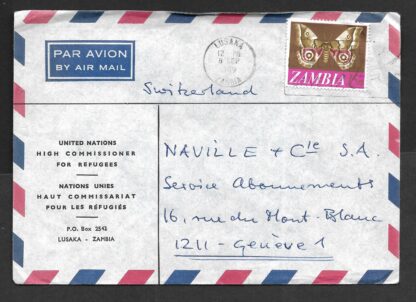 PAR AVION
BY AIR MAIL
LUSAKA
12
SEP
ZAMBIA
ZAMBIA
Switzerland
UNITED NATIONS
HIGH COMMISSIONER
FOR REFUGEES
NATIONS UNIES
HAUT COMMISSARIAT
POUR LES RÉFUGIÉS
P.O. Box 2542
LUSAKA - ZAMBIA
NAVILLE + Cie S.A.
Service Abonnements
16, rue du Mont-Blanc
1211 - Genève 1